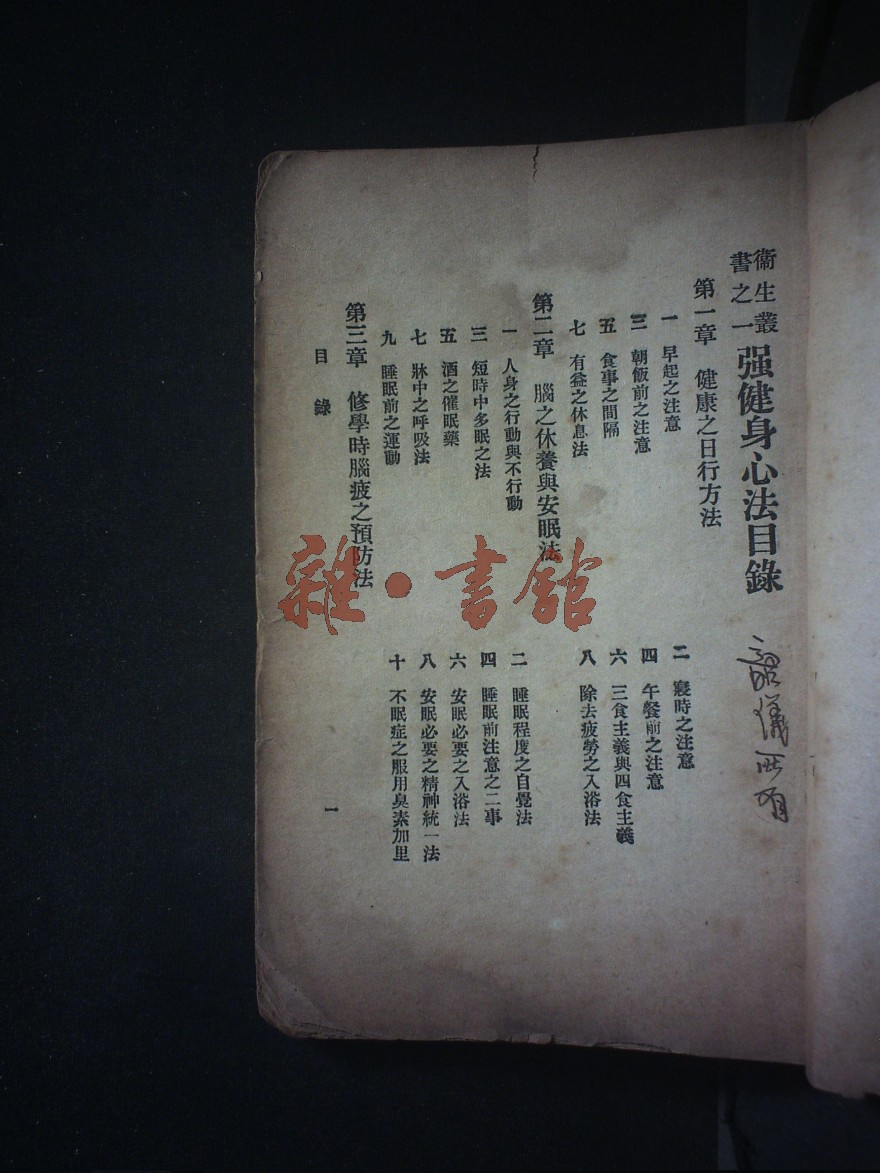 衞生叢書之一 强健身心法目錄
第一章 健康之日行方法
一 早起之注意
二 寢時之注意
三 朝飯前之注意
四 午餐前之注意
五 食事之間隔
六 三食主義與四食主義
七 有益之休息法
八 除去疲勞之入浴法
第二章 腦之休養與安眠法
一 人身之行動與不行動
二 睡眠程度之自覺法
三 短時中多眠之法
四 睡眠前注意之二事
五 酒之催眠藥
六 安眠必要之入浴法
七 牀中之呼吸法
八 安眠必要之精神統一法
九 睡眠前之運動
十 不眠症之服用臭素加里
第三章 修學時腦疲之預防法
目錄
一
儀所有
雜·書館